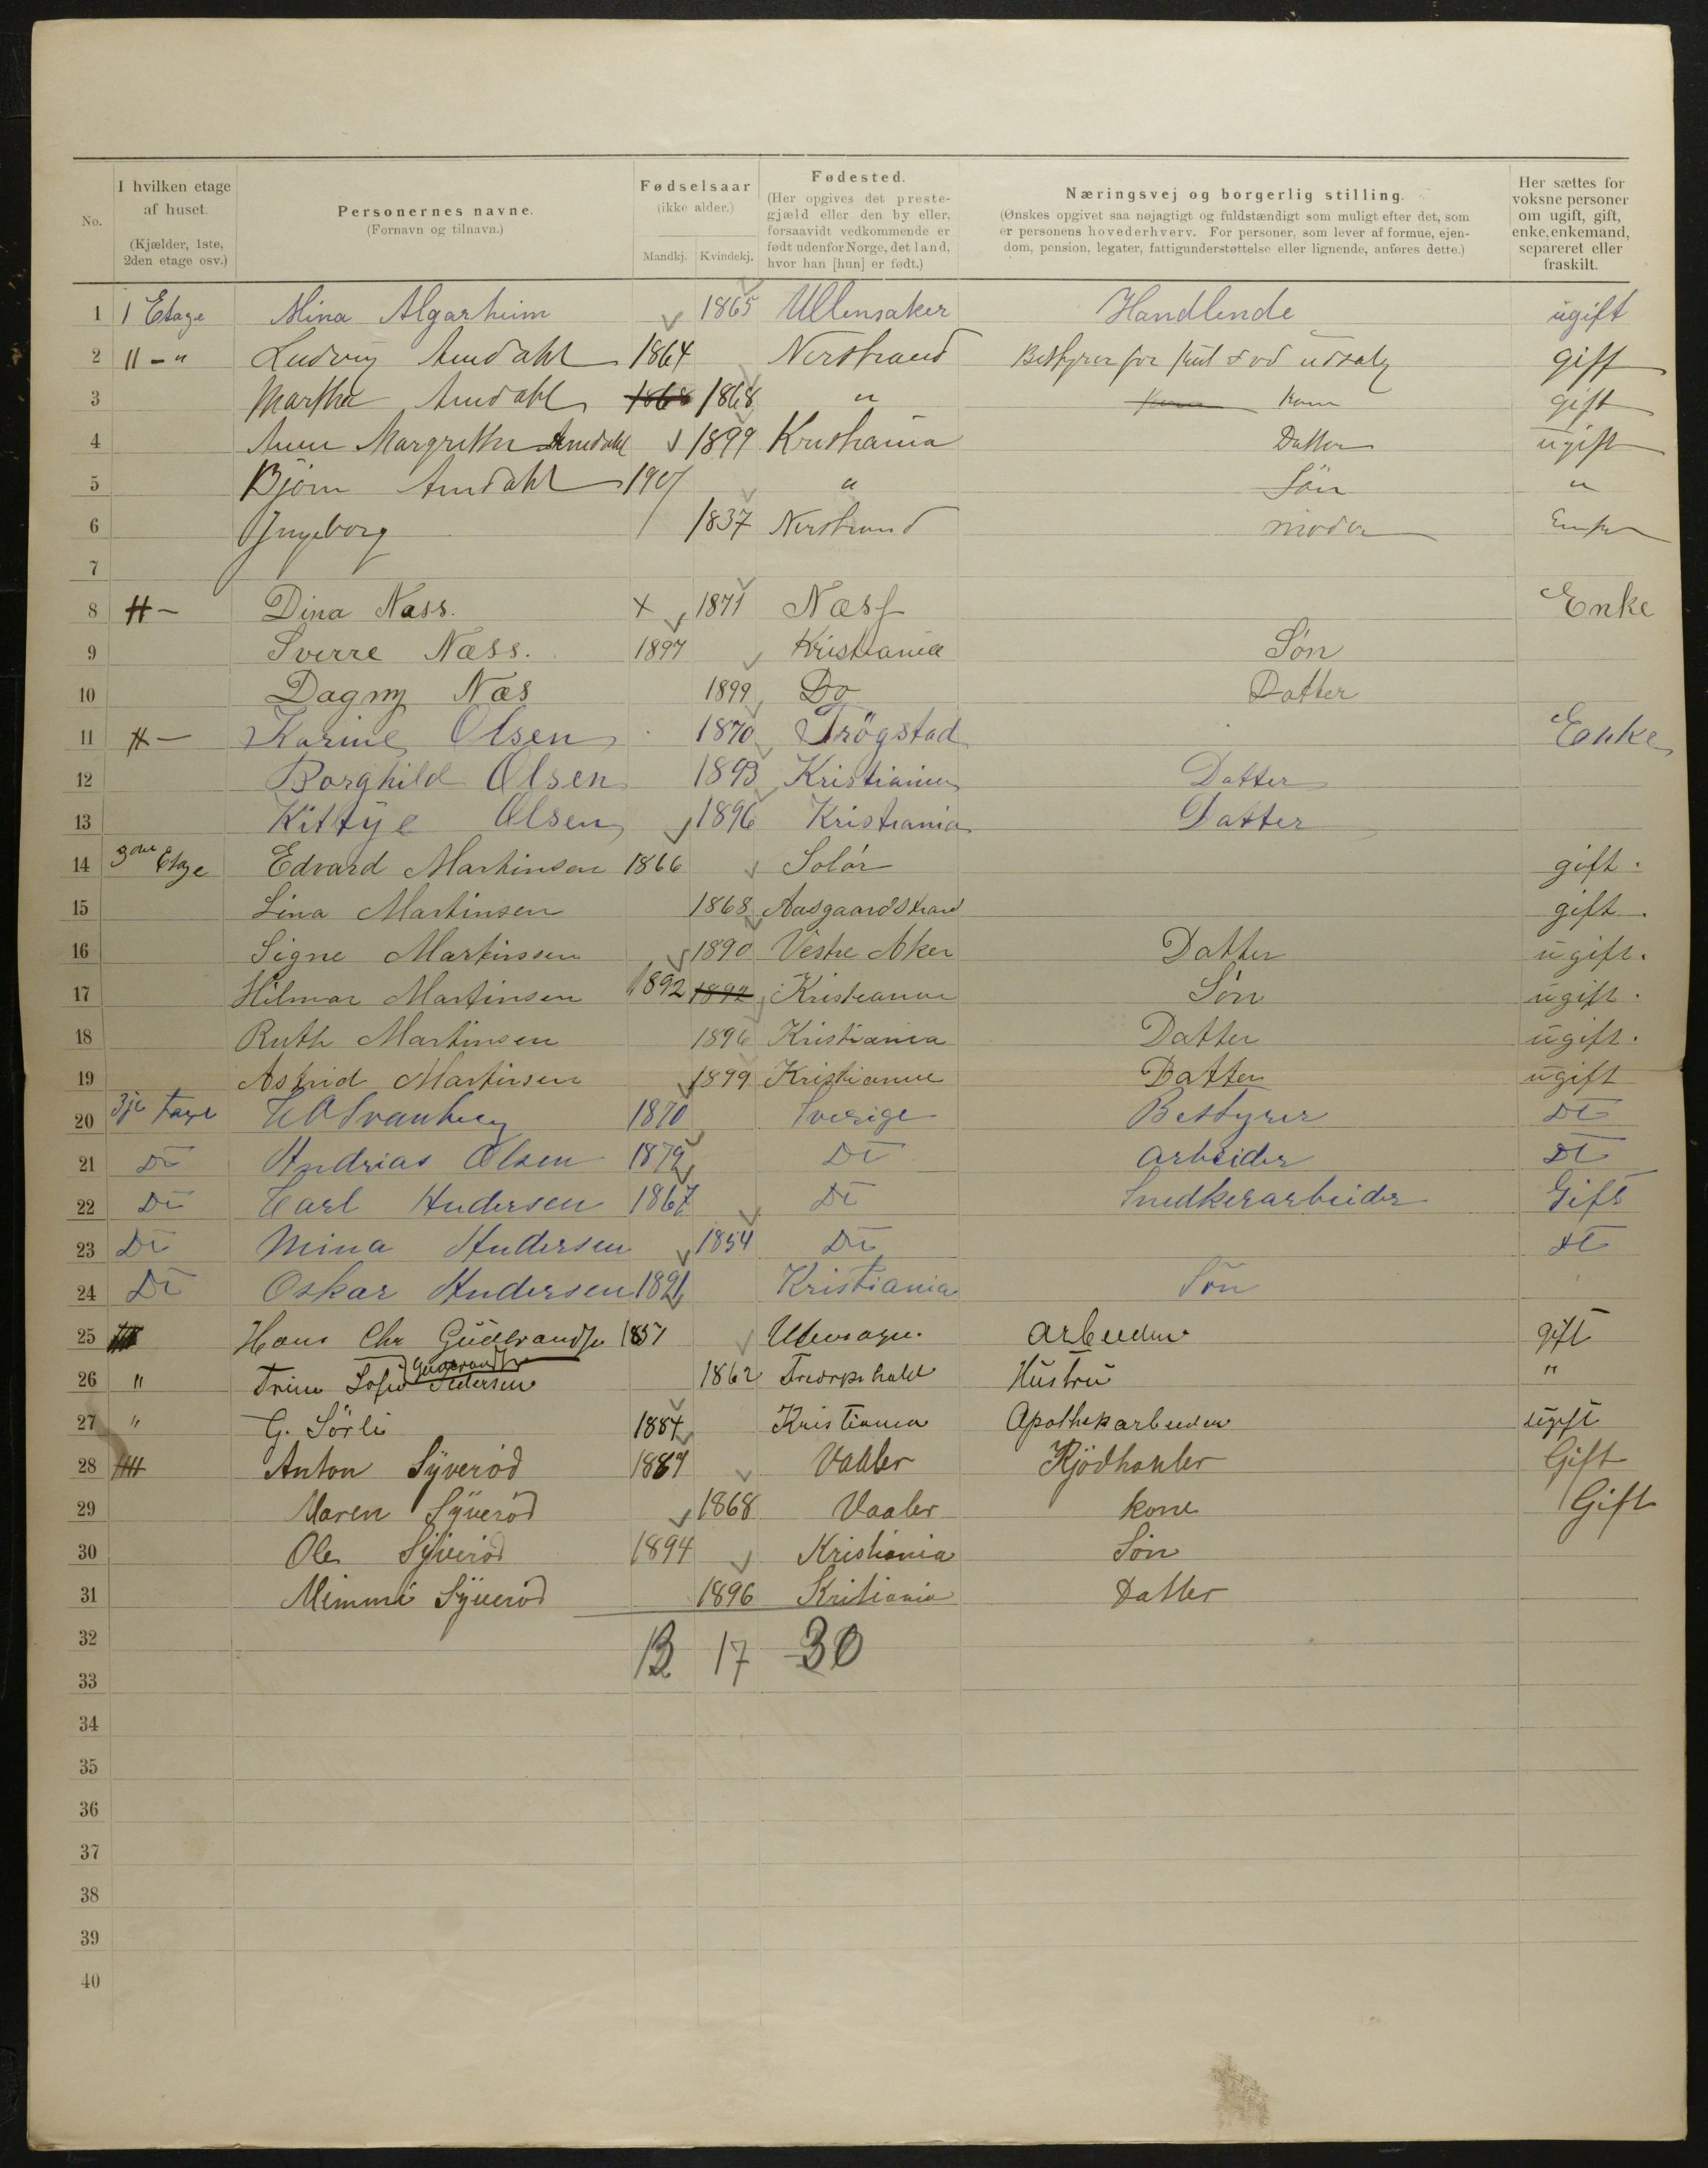 No. | I hvilken etage af huset. (Kjælder, 1ste, 2den etage osv.) | Personernes navne. (Fornavn og tilnavn.) | Fødselsaar (ikke alder.) Mandkj. Kvindekj. | Fødested. (Her opgives det prestegjæld eller den by eller, forsaavidt vedkommende er født udenfor Norge, det land, hvor han [hun] er født.) | Næringsvej og borgerlig stilling. (Ønskes opgivet saa nøjagtigt og fuldstændigt som muligt efter det, som er personens hovederhverv. For personer, som lever af formue, ejendom, pension, legater, fattigunderstøttelse eller lignende, anføres dette.) | Her sættes for voksne personer om ugift, gift, enke, enkemand, separeret eller fraskilt.
1 1 Etage Mina Algarheim 1865 Ullensaker Handlende ugift
2 11 - " Ludvig Amdahl 1864 Nerstrand Bestyrer for kul & ved udsalg gift
3 Martha Amdahl 1868 1868 " Kone Kone gift
4 Anne Margrethe Amdahl 1899 Kristiania Datter ugift
5 Bjørn Amdahl 1907 " Søn "
6 Ingeborg 1837 Nerstrand moder Enke
7
8 Dina Næss. x 1871 Næss Enke
9 Sverre Næss. 1897 Kristiania Søn
10 Dagny Næs 1899 Do Datter
11 Karine Olsen 1870 Trögstad Enke
12 Borghild Olsen 1893 Kristiania Datter
13 Kittye Olsen 1896 Kristiania Datter
14 Etage Edvard Martinsen 1866 Solør gift.
15 Lina Martinsen 1868 Aasgaardstrand gift.
16 Signe Martinsen 1890 Vestre Aker Datter ugift.
17 Hilmar Martinsen 1892 1892 Kristiania Søn ugift.
18 Ruth Martinsen 1896 Kristiania Datter ugift.
19 Astrid Martinsen 1899 Kristiania Datter ugift
20 3je Svanberg 1870 Sverige Bestyrer Do
21 Do Andrias Olsen 1879 Do arbeider Do
22 Do Carl Andersen 1867 Do Snedkerarbeider Gift
23 Do Mina Andersen 1854 Do Do
24 Do Oskar Andersen 1891 Kristiania Søn
25 Hans Chr Gudbrandsen 1857 arbeider gift
26 " Trine Sofie Pedersen Gudbrandsen 1862 Fredrikshald Hustru "
27 " G. Sörli 1884 Kristiania Apothekarbeider ugift
28 Anton Syverød Vaaler Kjødhanler Gift
29 Maren Syverød 1868 Vaaler kone Gift
30 Ole Syverød 1894 Kristiania Søn
31 Mimmi Syverød 1896 Kritiania Datter
32 13 17 30
33
34
35
36
37
38
39
40